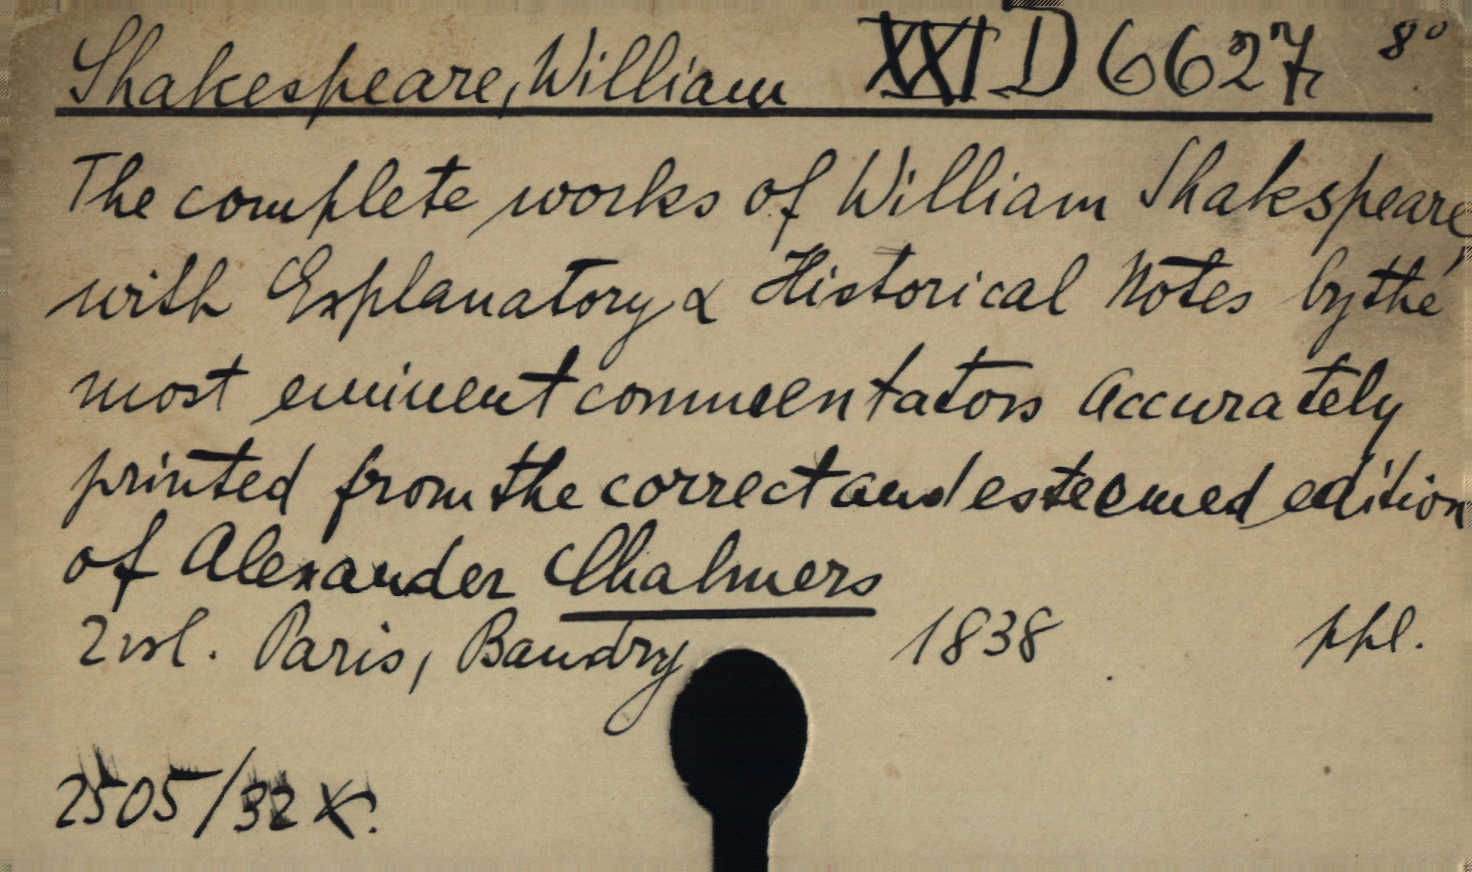 Shakespeare, William XXI D 6627 8°
The complete works of William Shakespeare,
with Explanatory & Historical Notes by the
most eminent commentators accurately
printed from the correct and esteemed edition
of Alexander Chalmers
2 vol. Paris, Baudry 1838 ppl.
2505/32 X.